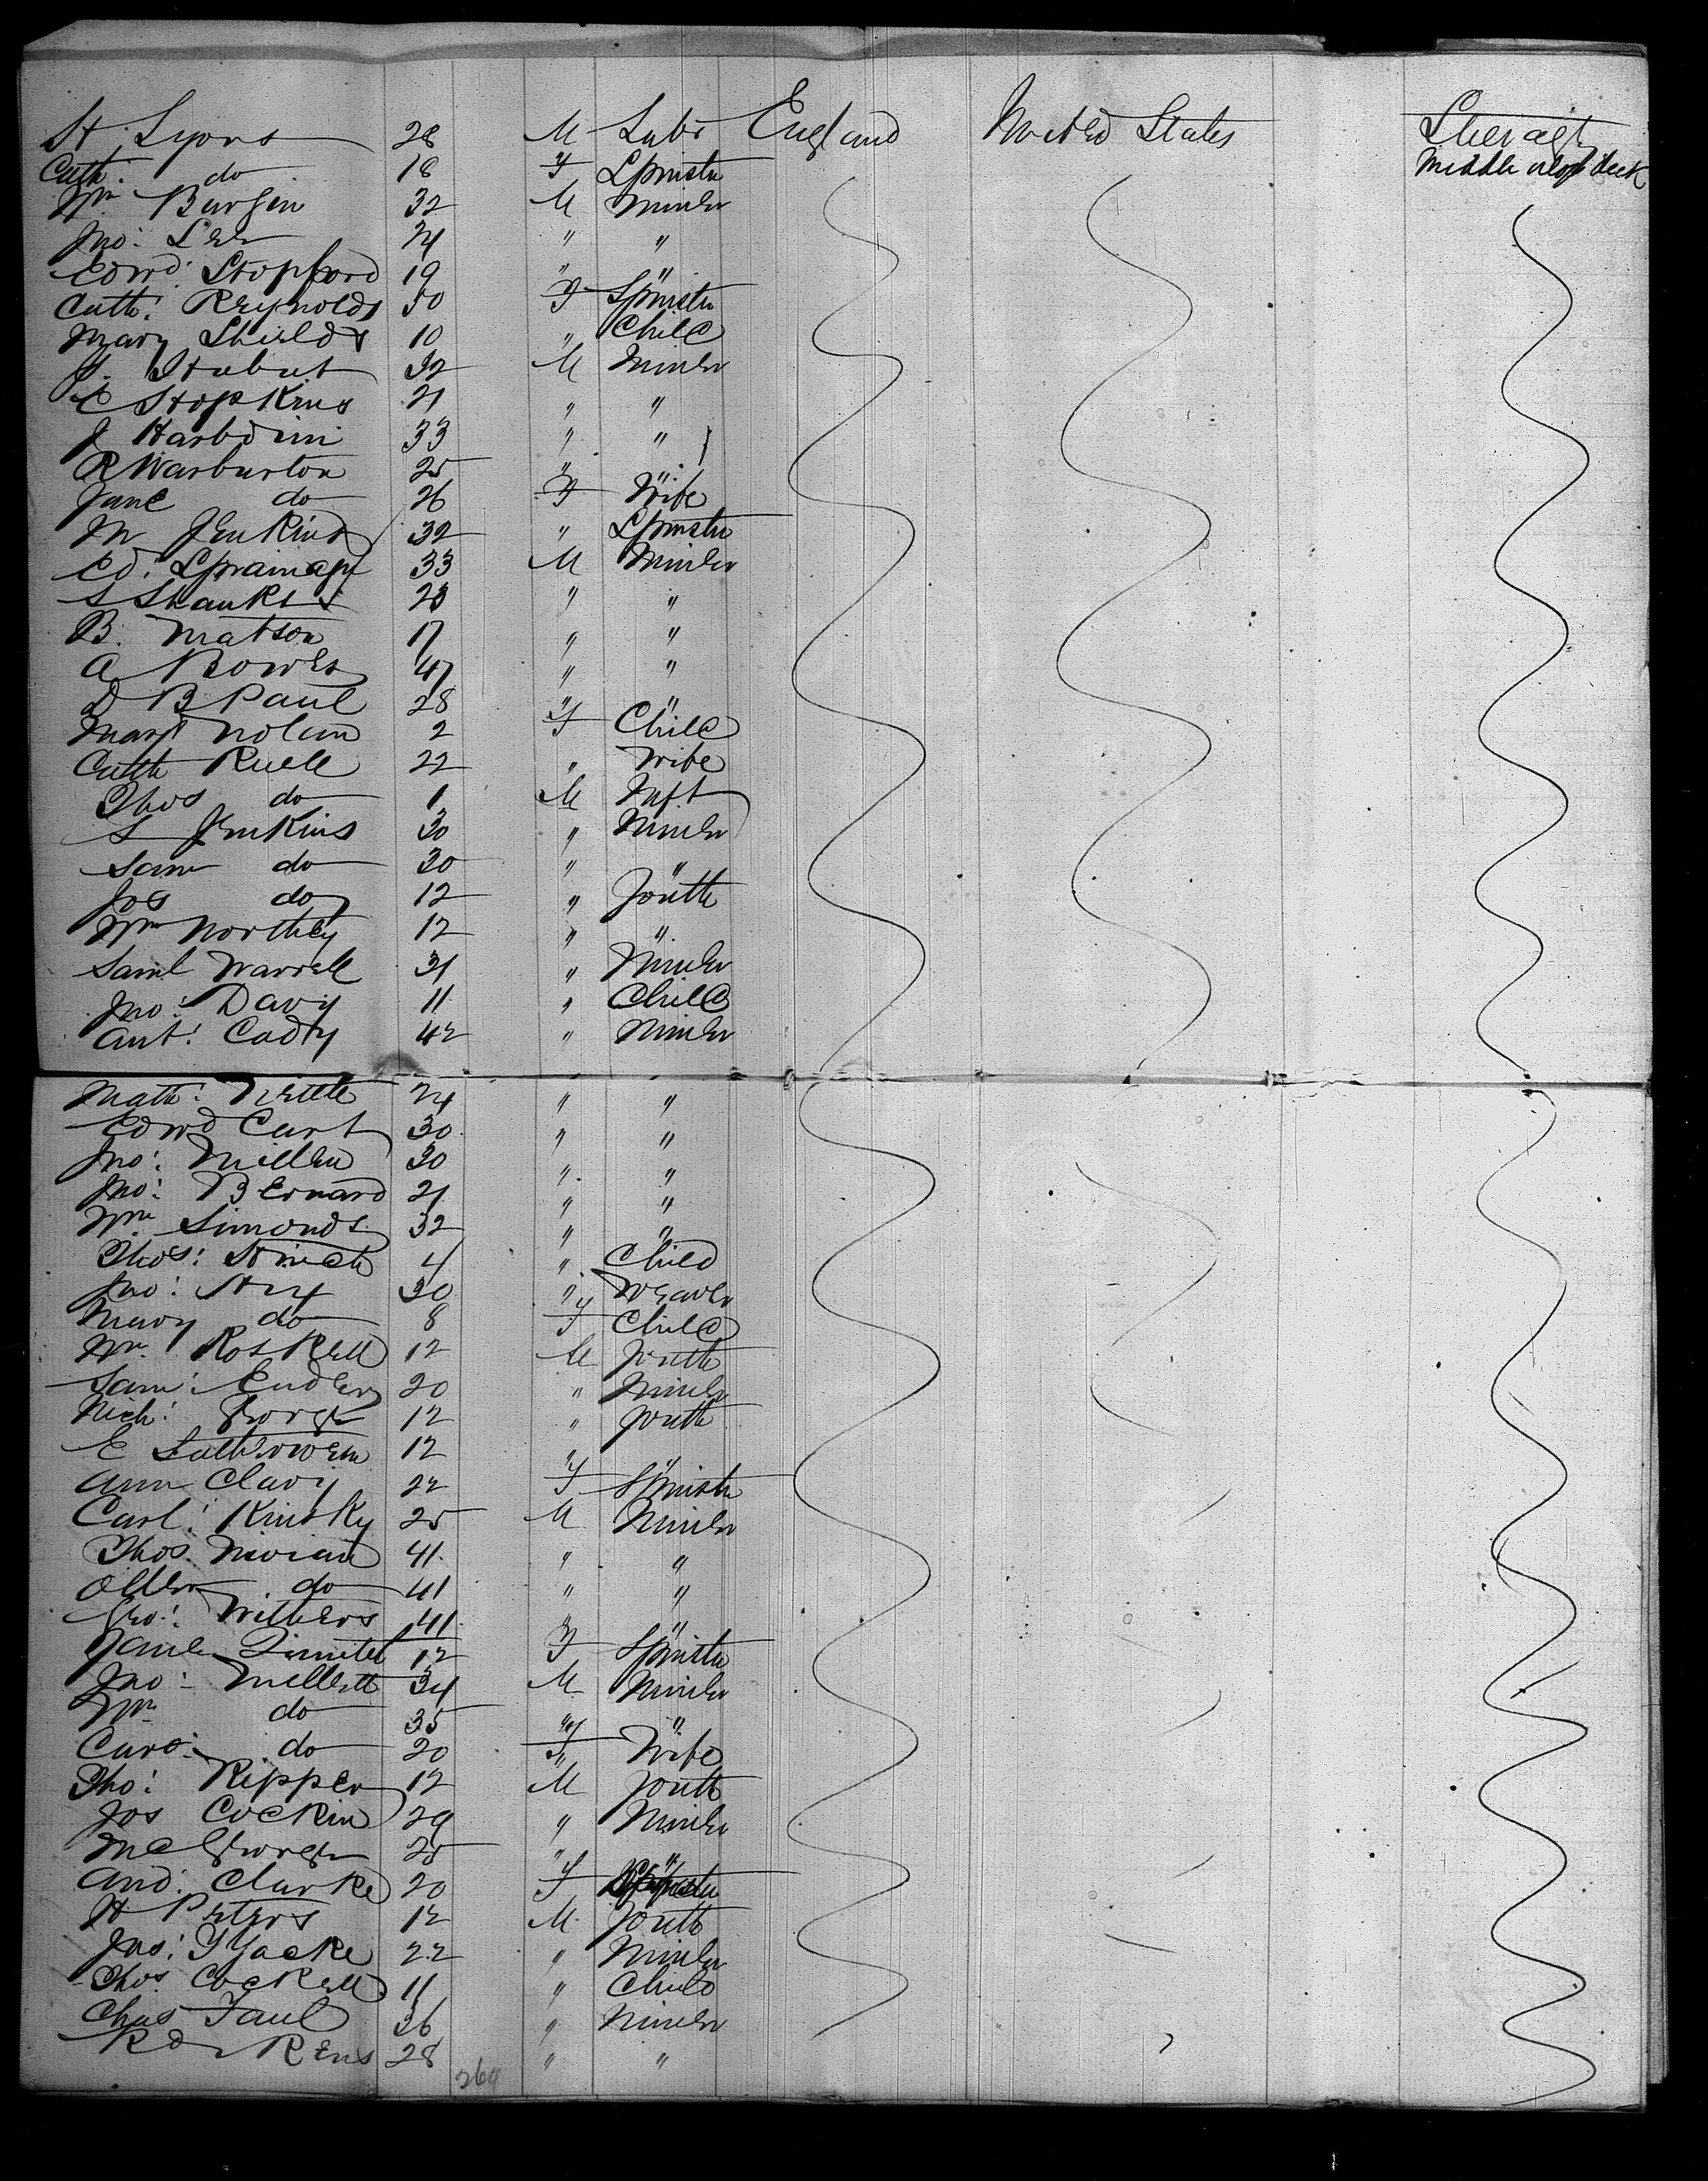 H Lyons 28 M Labr England United States Steerage
Cath: do 18 F Spinster Middle deck
Wm Burgin 32 M Miner
Jno: Lee 24 " "
Edwd: Stopford 19 " "
Cath: Reynolds 50 F Spinster
Mary Shields 10 " Child
J. Hubut 32 M Miner
E Hopkins 21 " "
J 33 " "
R Warburton 25 " "
Jane do 26 F Wife
M Jenkins 32 " Spinster
Ed: 33 M Miner
S Shanks 23 " "
B. Matson 17 " "
A Bowes 47 " "
D B Paul 28 " "
Margt Nolan 2 F Child
Cath Ruell 22 " Wife
Thos do 1 M Inft
S Jenkins 30 " Miner
Sam do 30 " "
Jos do 12 " Youth
Wm Northey 12 " "
Saml Warrell 31 " Miner
Jno: Davy 11 " Child
Ant: Cady 42 " Miner
Math: Nettle 24 " "
Edwd Curt 30 " "
Jno: Miller 30 " "
Jno: Bernard 21 " "
Wm Simonds 32 " "
Thos: 4 " Child
Jno: 30 " Weaver
Mary do 8 F Child
Wm Roskell 12 M Youth
Sam: Endey 20 " Miner
Rich: George 12 " Youth
E 12 " "
Ann Clavy 22 F Spinster
Carl: Kinsky 25 M Miner
Thos. Nivian 41 " "
do 41 " "
Geo: Withers 41 " "
Jane 12 F Spinster
Jno: Mellett 34 M Miner
Wm do 35 " "
Caro: do 20 F Wife
Tho: Ripper 12 M Youth
Jos Cockin 29 " Miner
Mc George 25 " "
And: Clarke 20 F
H Peters 12 M Youth
Jno: Yacke 22 " Miner
Thos Cockell 11 " Child
Chas Faul 36 " Miner
28 " "
269